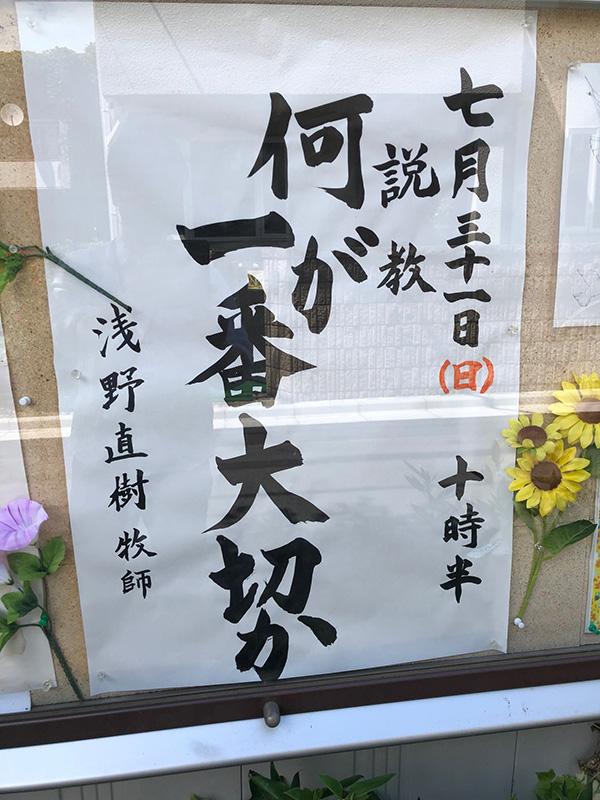 七月三十一日(日) 十時半
説教
何が
一番大切か
浅野直樹 牧師